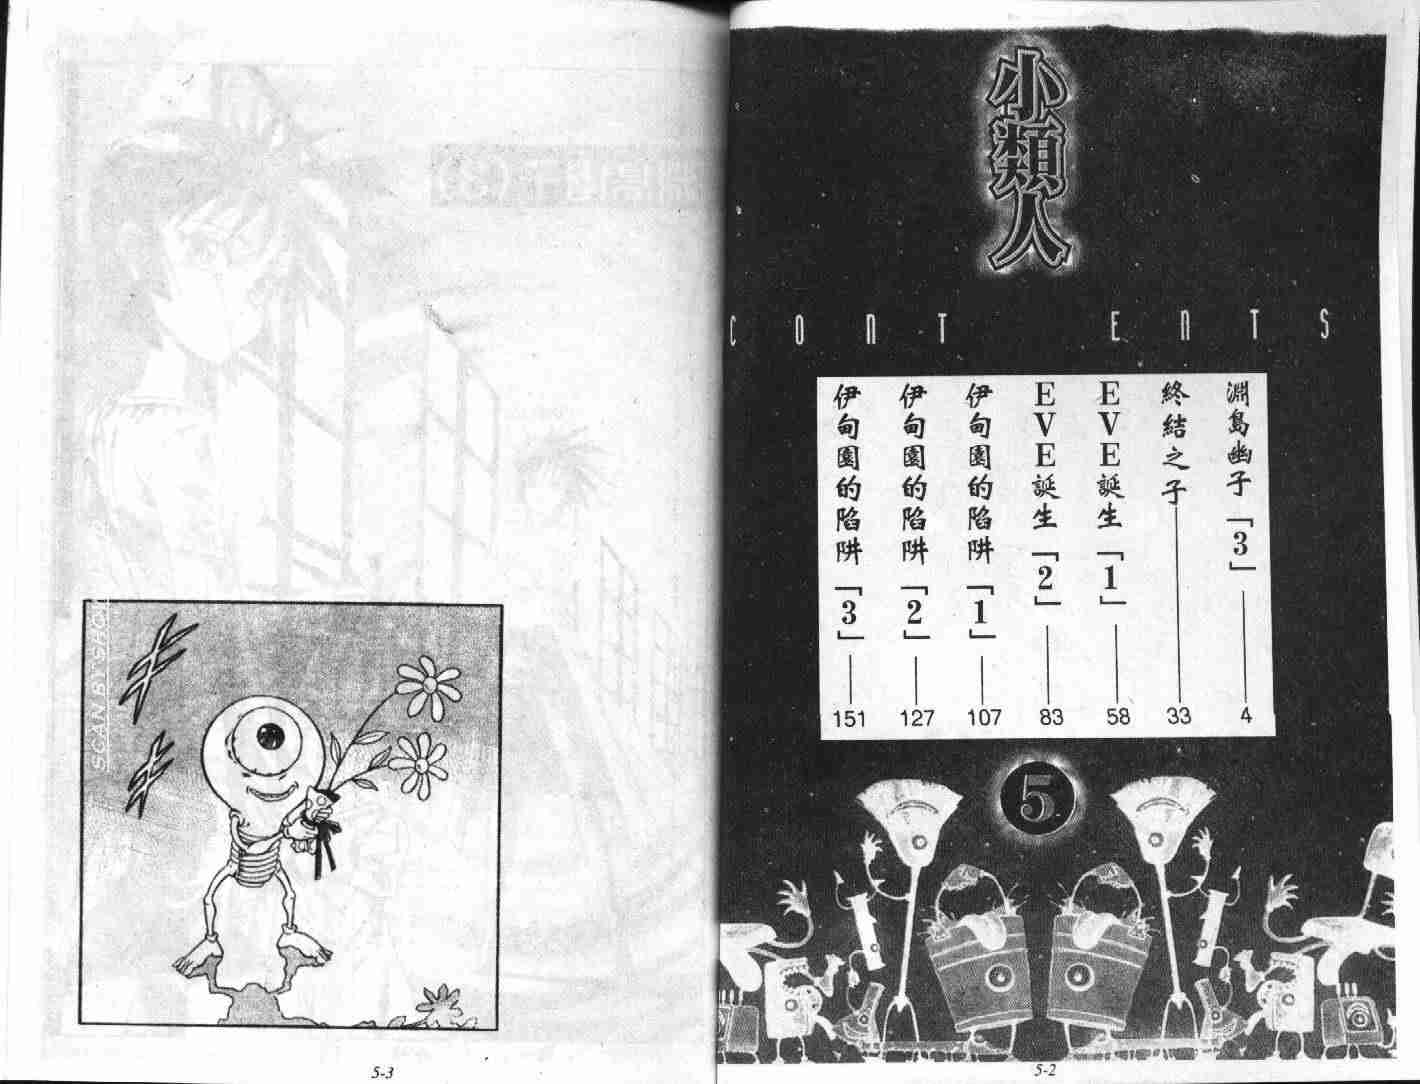 小類人
CONTENTS
淵島幽子「3」 4
終結之子 33
EVE誕生「1」 58
EVE誕生「2」 83
伊甸園的陷阱「1」 107
伊甸園的陷阱「2」 127
伊甸園的陷阱「3」 151
5
5-2
SCAN BY SACH
5-3